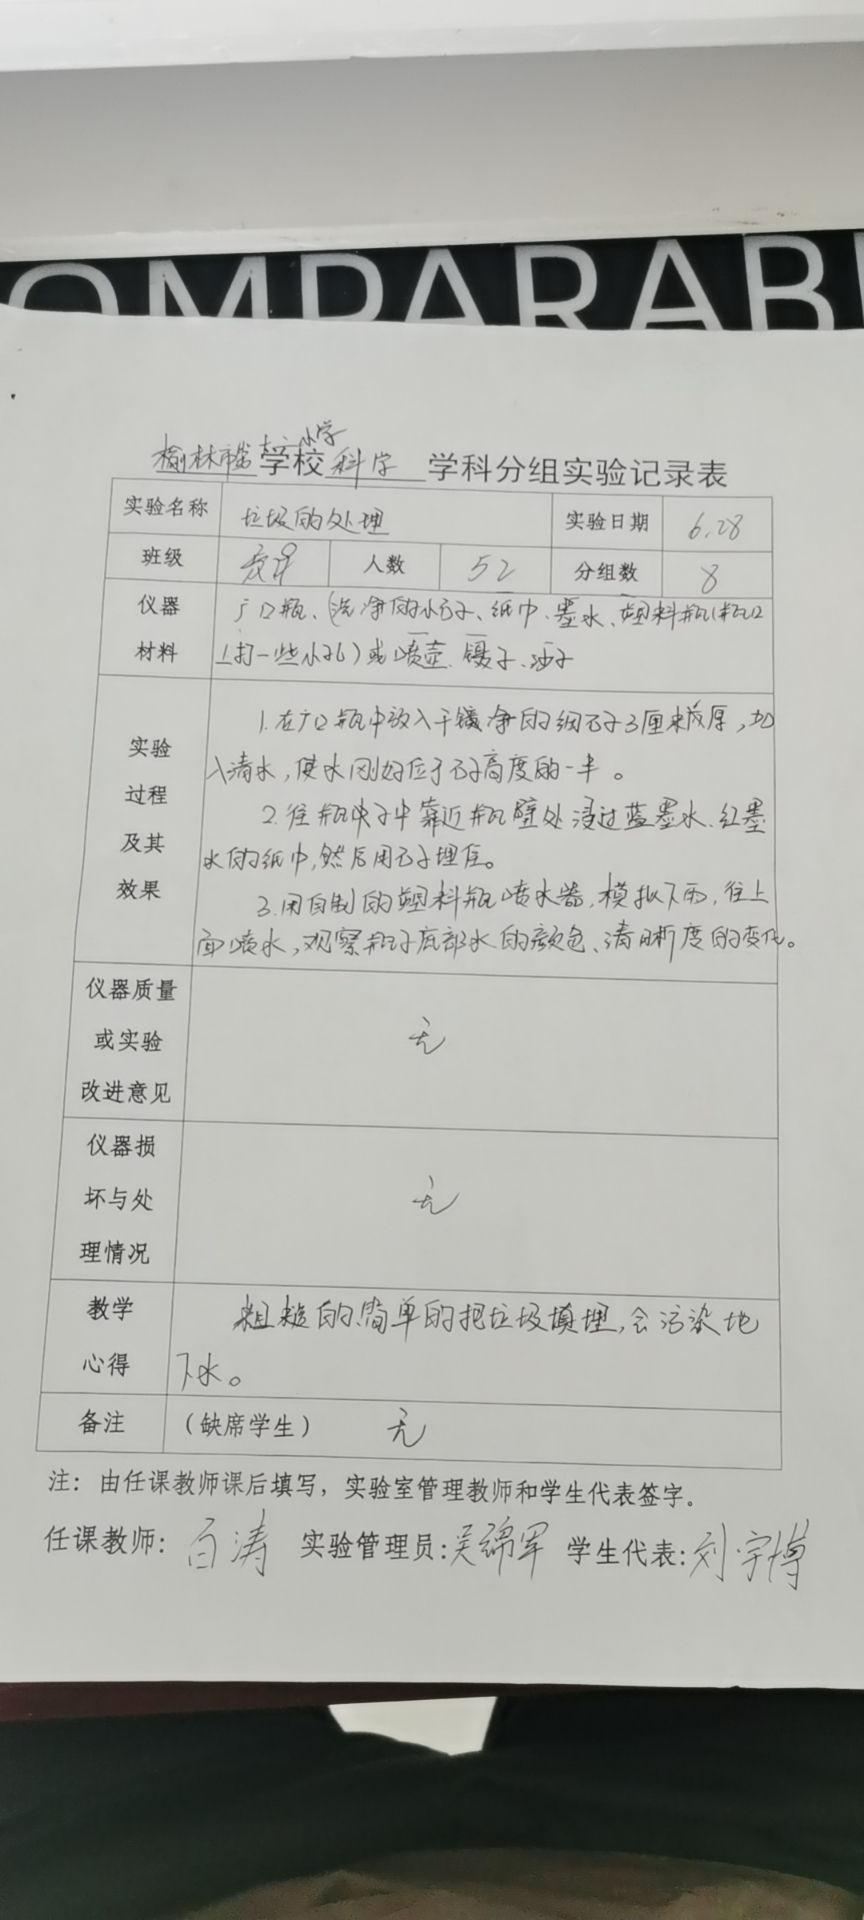 OMPARAB
小学
榆林市第 学校 科学 学科分组实验记录表
实验名称 垃圾的处理 实验日期 6.28
班级 人数 52 分组数 8
仪器 广口瓶、(洗净的小石子、纸巾、墨水、塑料瓶(瓶口
材料 上打一些小孔)或喷壶、镊子、油子
实验 过程 及其 效果
1.在广口瓶中放入干净的细石子3厘米厚,加
入清水,使水刚好位于石子高度的一半。
2.往瓶中靠近瓶壁处浸过蓝墨水、红墨
水的纸巾,然后用石子埋住。
3.用自制的塑料瓶喷水器,模拟下雨,往上
面喷水,观察瓶子底部水的颜色、清晰度的变化。
仪器质量 或实验 改进意见 无
仪器损 坏与处 理情况 无
教学 粗糙的简单的把垃圾填埋,会污染地
心得 下水。
备注 (缺席学生) 无
注:由任课教师课后填写,实验室管理教师和学生代表签字。
任课教师:百涛 实验管理员:吴锦军 学生代表:刘宇博